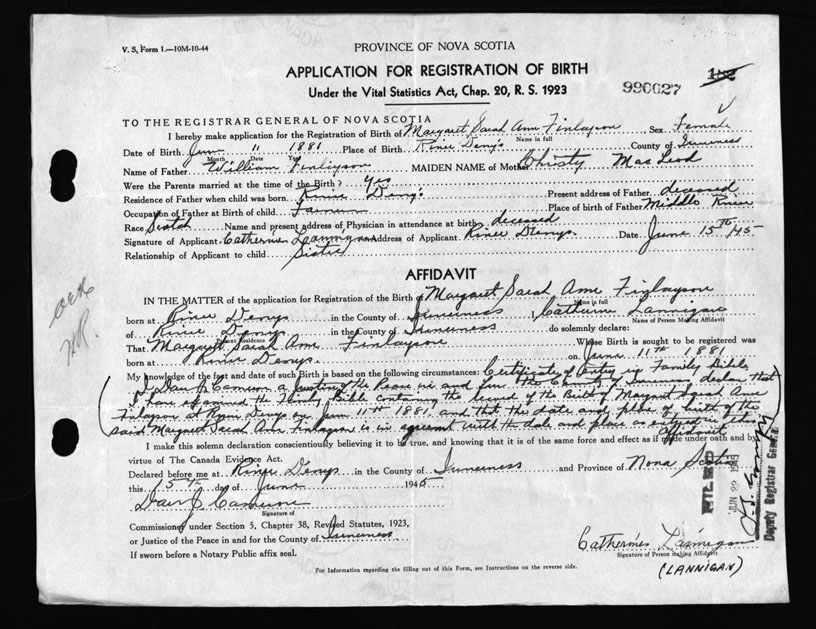 V. S. Form 1.—10M-10-44
PROVINCE OF NOVA SCOTIA
APPLICATION FOR REGISTRATION OF BIRTH
Under the Vital Statistics Act, Chap. 20, R. S. 1923
990627
TO THE REGISTRAR GENERAL OF NOVA SCOTIA
I hereby make application for the Registration of Birth of Margaret Sarah Ann Finlayson Sex Female
Name in full
Date of Birth June 11 1881 Place of Birth River Denys County of Inverness
Month Date Year
Name of Father William Finlayson MAIDEN NAME of Mother Christy MacLeod
Were the Parents married at the time of the Birth? Yes
Residence of Father when child was born River Denys Present address of Father deceased
Occupation of Father at Birth of child Farmer Place of birth of Father Middle River
Race Scotch Name and present address of Physician in attendance at birth deceased
Signature of Applicant Catherine Lannigan Address of Applicant River Denys Date June 15th/45
Relationship of Applicant to child Sister
AFFIDAVIT
IN THE MATTER of the application for Registration of the Birth of Margaret Sarah Ann Finlayson
Name in full
born at River Denys in the County of Inverness I Catherine Lannigan
Name of Person Making Affidavit
of River Denys in the County of Inverness do solemnly declare:
Present Residence
That Margaret Sarah Ann Finlayson Whose Birth is sought to be registered was
born at River Denys on June 11th 1881
My knowledge of the fact and date of this Birth is based on the following circumstances: Certificate of Entry in Family Bible
I Dan J. Cameron a Justice of the Peace in and for the County of Inverness declare that
I have examined the Family Bible containing the record of the Birth of Margaret Sarah Ann
Finlayson at River Denys on June 11th 1881 and that the date and place of birth of the
said Margaret Sarah Ann Finlayson is in agreement with the date and place as entered in this
affidavit
I make this solemn declaration conscientiously believing it to be true, and knowing that it is of the same force and effect as if made under oath and by
virtue of The Canada Evidence Act.
Declared before me at River Denys in the County of Inverness and Province of Nova Scotia
this 15th day of June 1945
Dan J. Cameron
Signature of
Commissioner under Section 5, Chapter 38, Revised Statutes, 1923,
or Justice of the Peace in and for the County of Inverness
If sworn before a Notary Public affix seal.
Catherine Lannigan
Signature of Person making Affidavit
(LANNIGAN)
For Information regarding the filling out of this Form, see Instructions on the reverse side.
FILED
JUN 22 1945
Deputy Registrar General